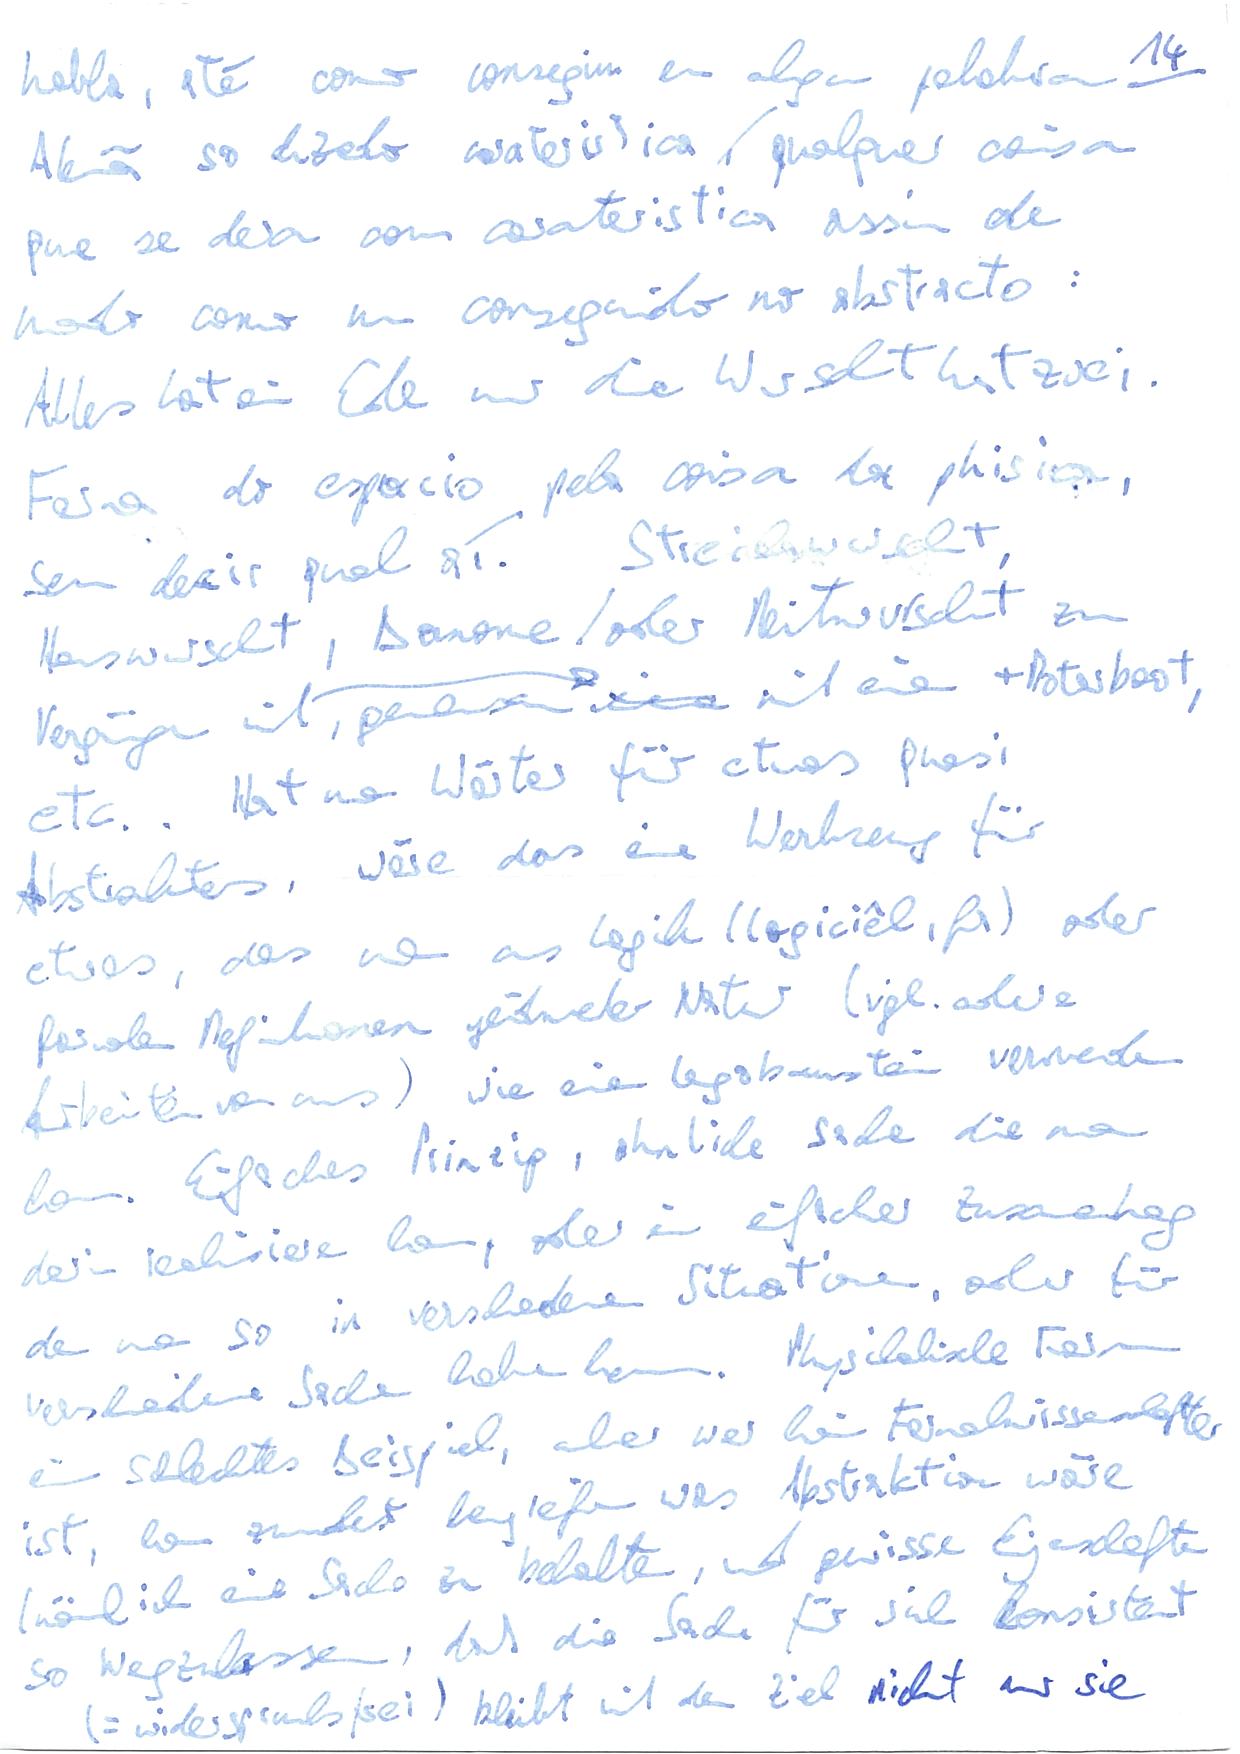 habla, até como conseguim en algun palabra 14
Alemã so dizedo carateristica / qualquer coisa
que se dera com carateristica assim de
modo como un conseguido no abstracto :
Alles hat ein Ende nur die Wurscht hat zwei.
Forma do espacio pela coisa da phisica,
sem decir qual aí. Streichwurscht,
Hanswurscht, Banane / oder Mitwurscht zu
Vergnüge mit, mit eine + Motorboot,
etc.. Hat ma Wörter für etwas quasi
Abstraktes, wäre das eine Werkzeug für
etwas, das ma aus Logik (logiciêl, fr) oder
formalen Definitionen geordneter Natur (vgl. andere
Arbeiten von uns) wie eine Legobaustein verwende
kann. Einfaches Prinzip, ähnliche Sache die ma
darin realisiere kann, oder ein einfacher Zusammehang
den ma so in verschiedene Situatione, oder für
verschiedene Sache habe kann. Physikalische Form
ein schlechtes Beispiel, aber wer kein Formalwissenschaftler
ist, kann zumindest begreife was Abstraktion wäre
(nämlich eine Sache zu behalte, und gewisse Eigenschafte
so wegzulassen, dass die Sache für sich konsistent
(= widerspruchsfrei) bleibt mit dem Ziel nicht nur sie